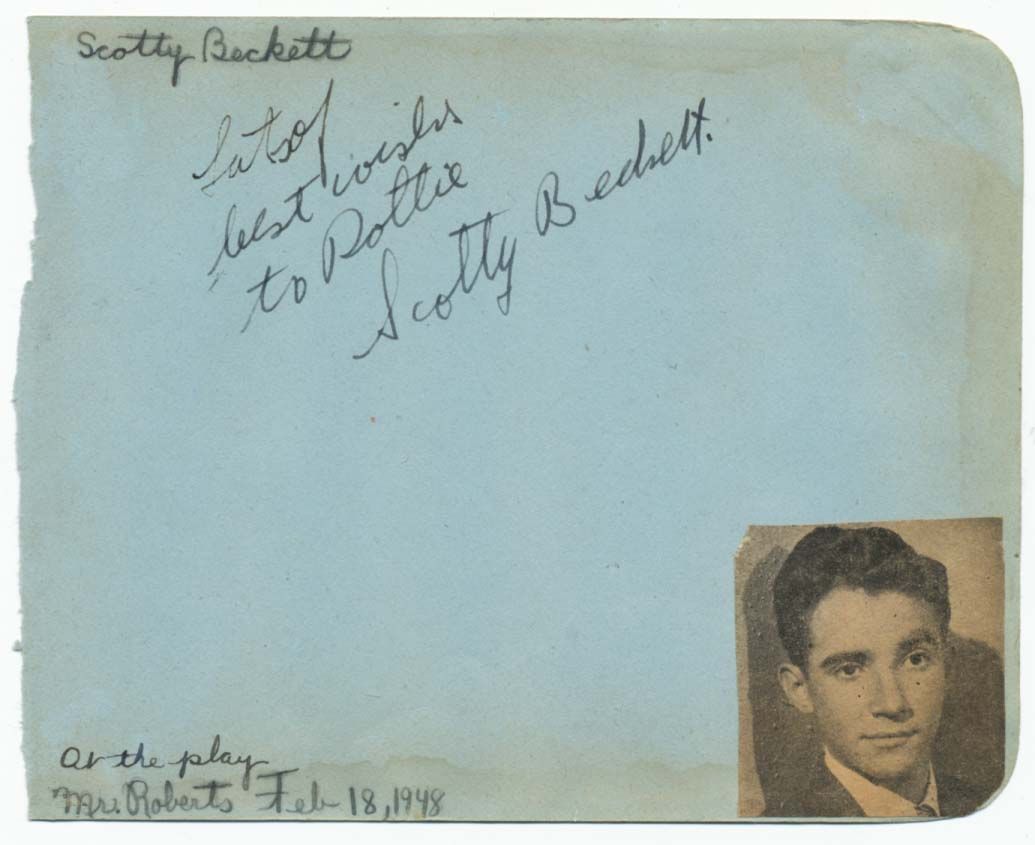 Scotty Beckett
Lots of
best wishes
to Dottie
Scotty Beckett.
At the play
Mr. Roberts Feb 18, 1948